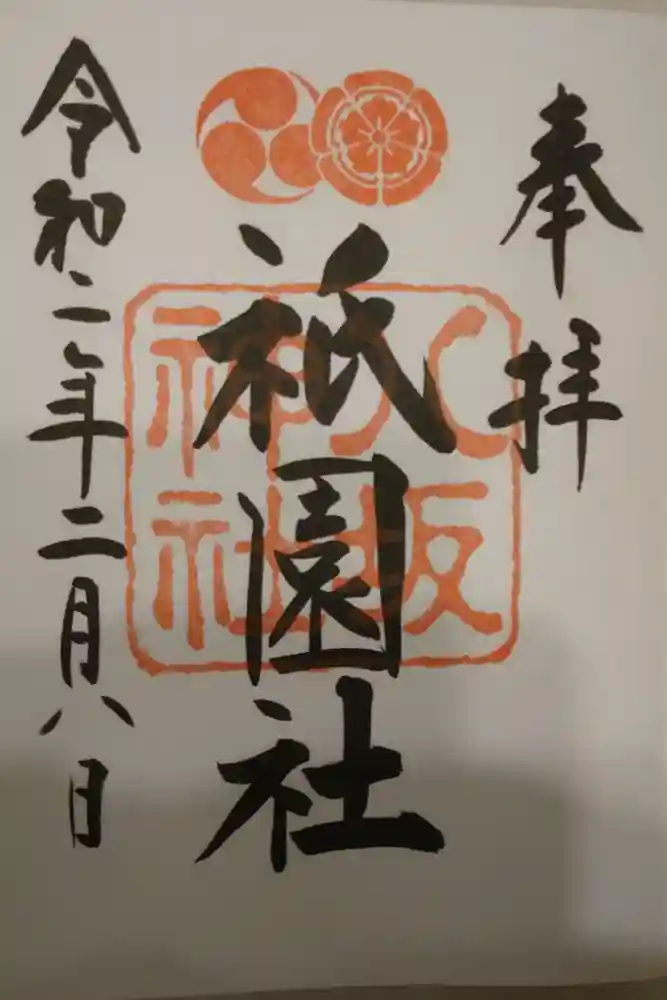 奉拝
八坂
神社
祇園社
令和二年二月八日